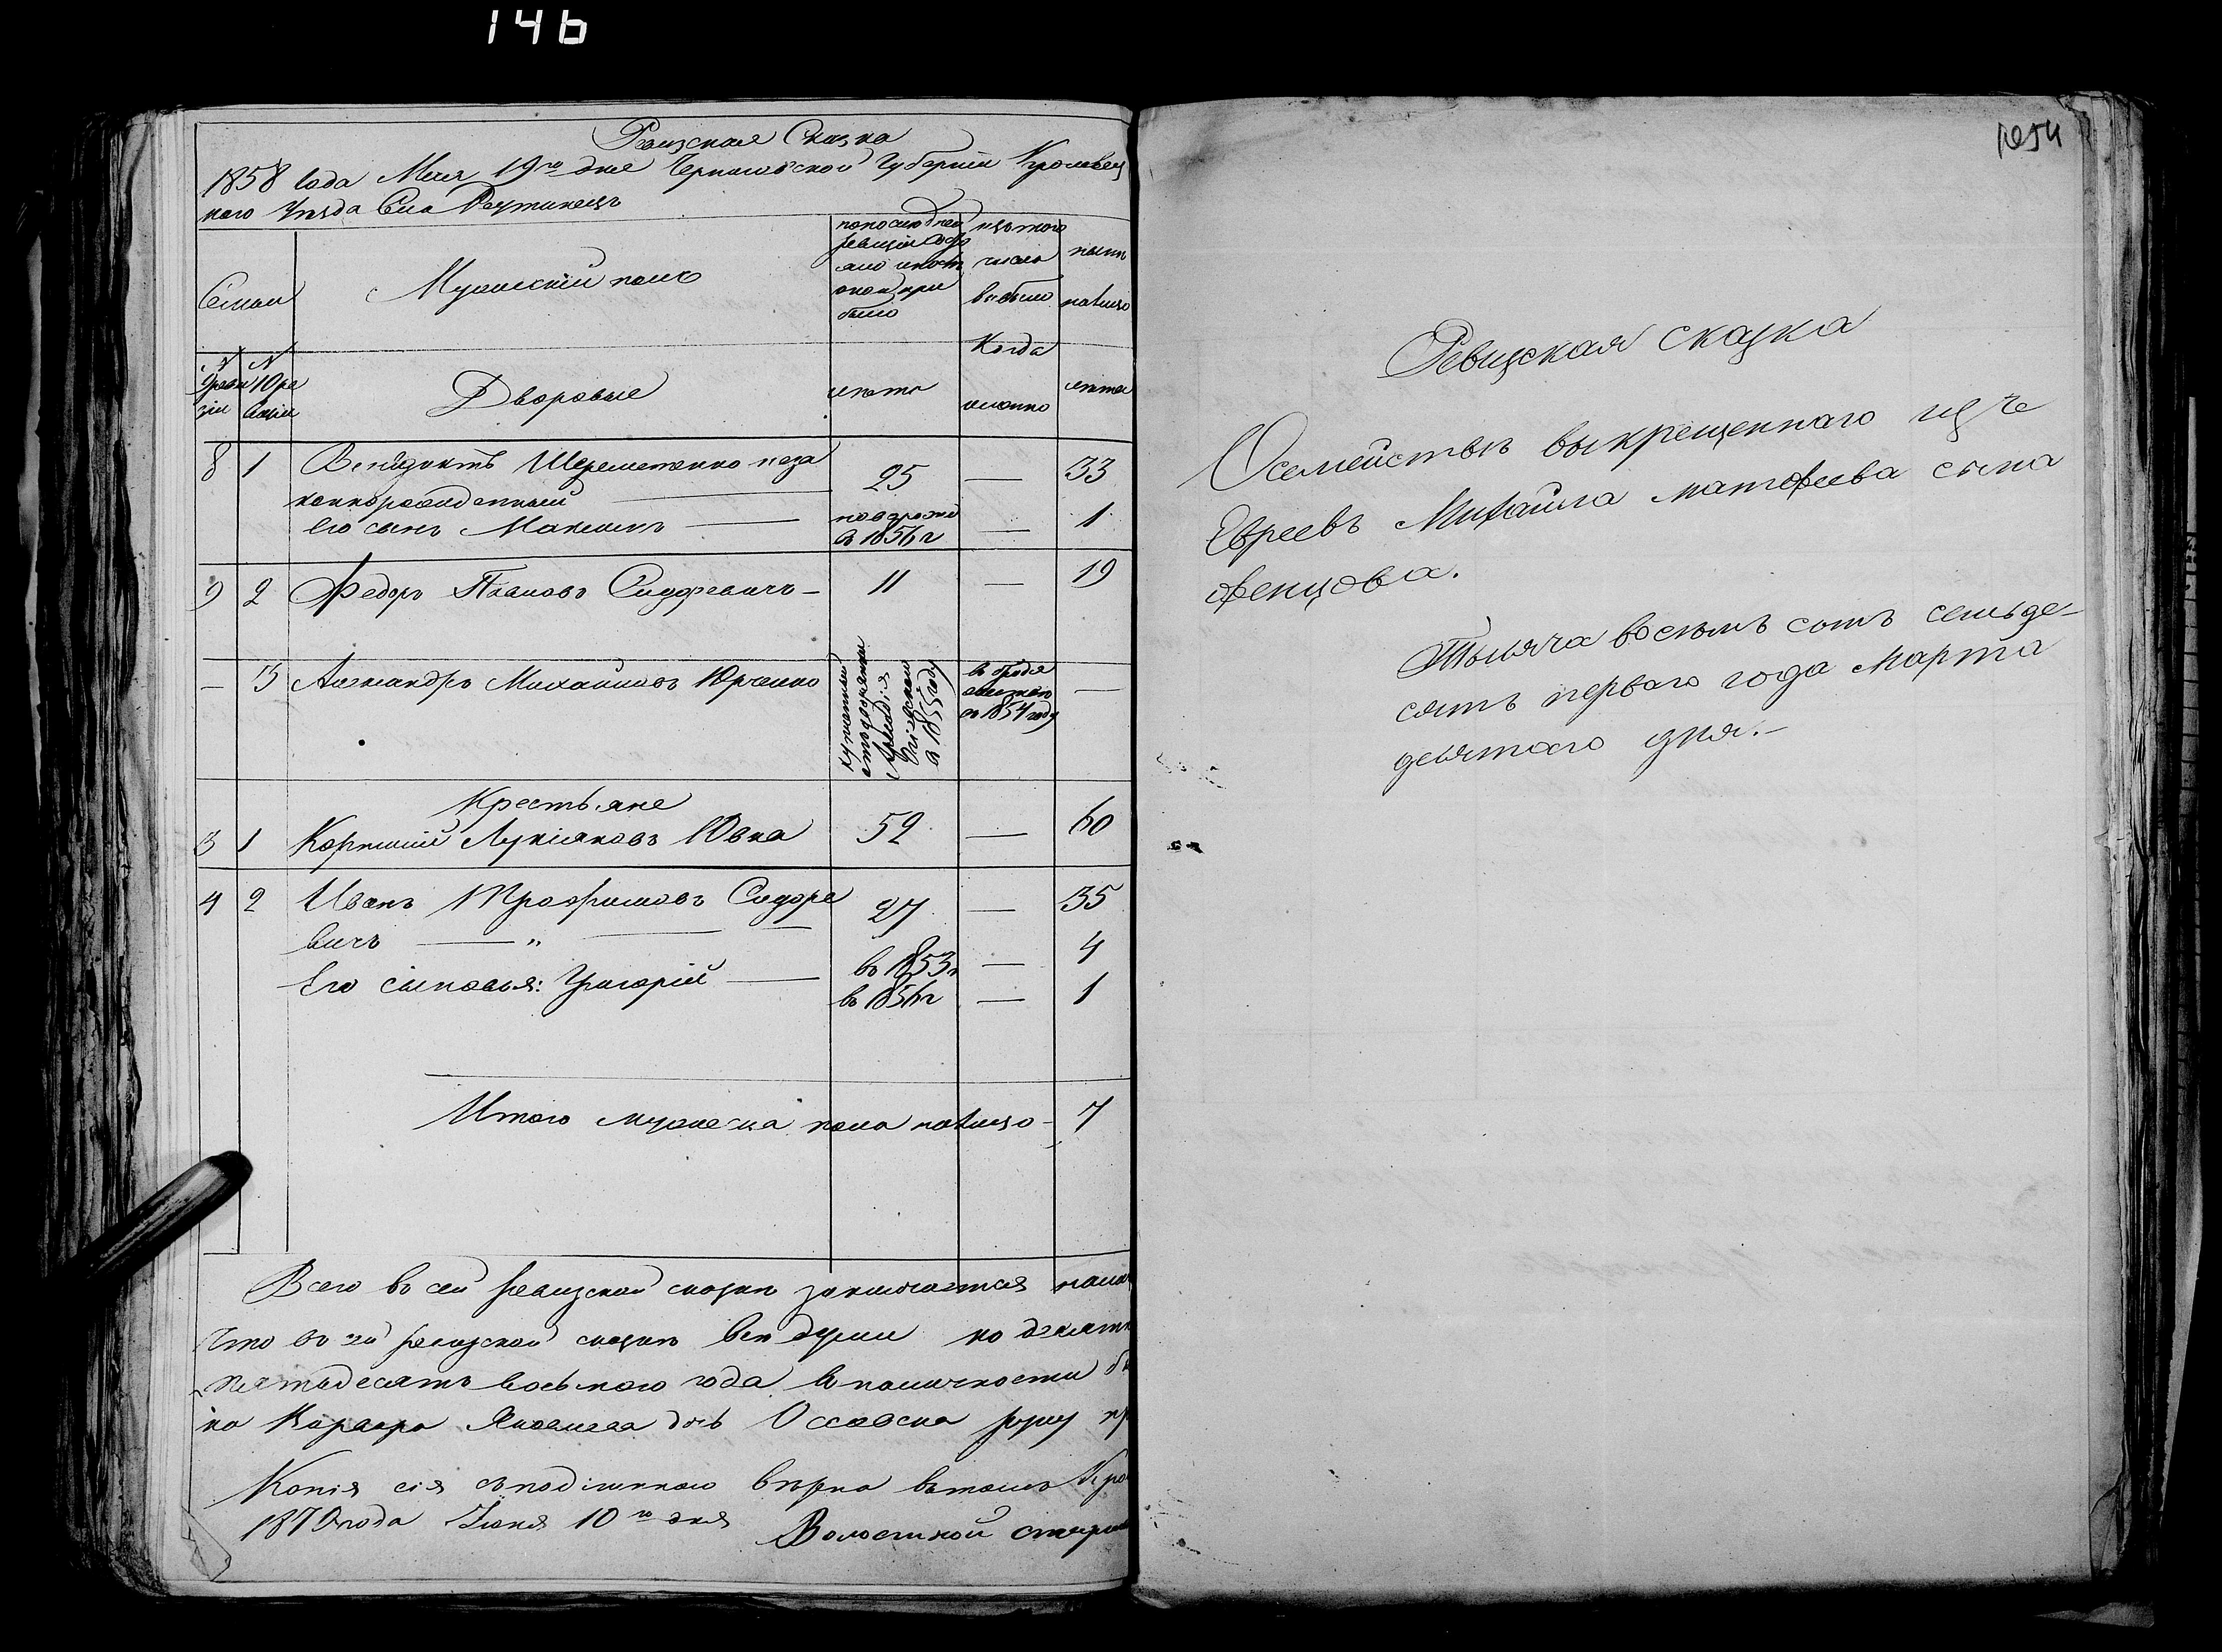 146
Ревизская Сказка
1858 года Мая 19го дня Черниговской Губерніи Кролевец
каго Уезда Села Реутинецъ
Семьи
Мужескій полъ
по последней
ревизіи состо
яло и после
оной при
было
изъ того
числа
выбыло
ныне
налицо
№
9 реви
зіи
№
10 ре
визіи
Дворовые
лета
Когда
именно
лета
8 1 Венидиктъ Шереметенко неза 25 — 33
коннорожденный
Его сынъ Максимъ — новорож — 1
в 1856 г
9 2 Федоръ Ивановъ Сидоревичъ — 11 — 19
— 3 Александръ Михайловъ Юрченко
въ 1855 году
въ 1854 году
—
Крестьяне
3 1 Корнилій Лукіяновъ Ювка 52 — 60
4 2 Иванъ Трофимовъ Сидоре 27 — 35
вичъ — „ —
въ 1853 г — 4
Его сыновья: Григорій —
въ 1856 г — 1
Итого мужеска пола налицо — 7
Всего въ сей ревизской сказке заключается нали
Что въ сей ревизской сказке все души по десят
пятьдесятъ восьмого года в наличности
на Варвара Яковлева дочь Оссовска руку пр
Копія сія съ подлинною верна въ томъ Кро
1870 года Іюня 10го дня Волостной старши
1054
Ревизская сказка
О семействе выкрещеннаго изъ
Евреевъ Михаила Матвеева сына
Френцова.
Тысяча восемь сотъ семьде-
сятъ перваго года Марта
девятаго дня.-